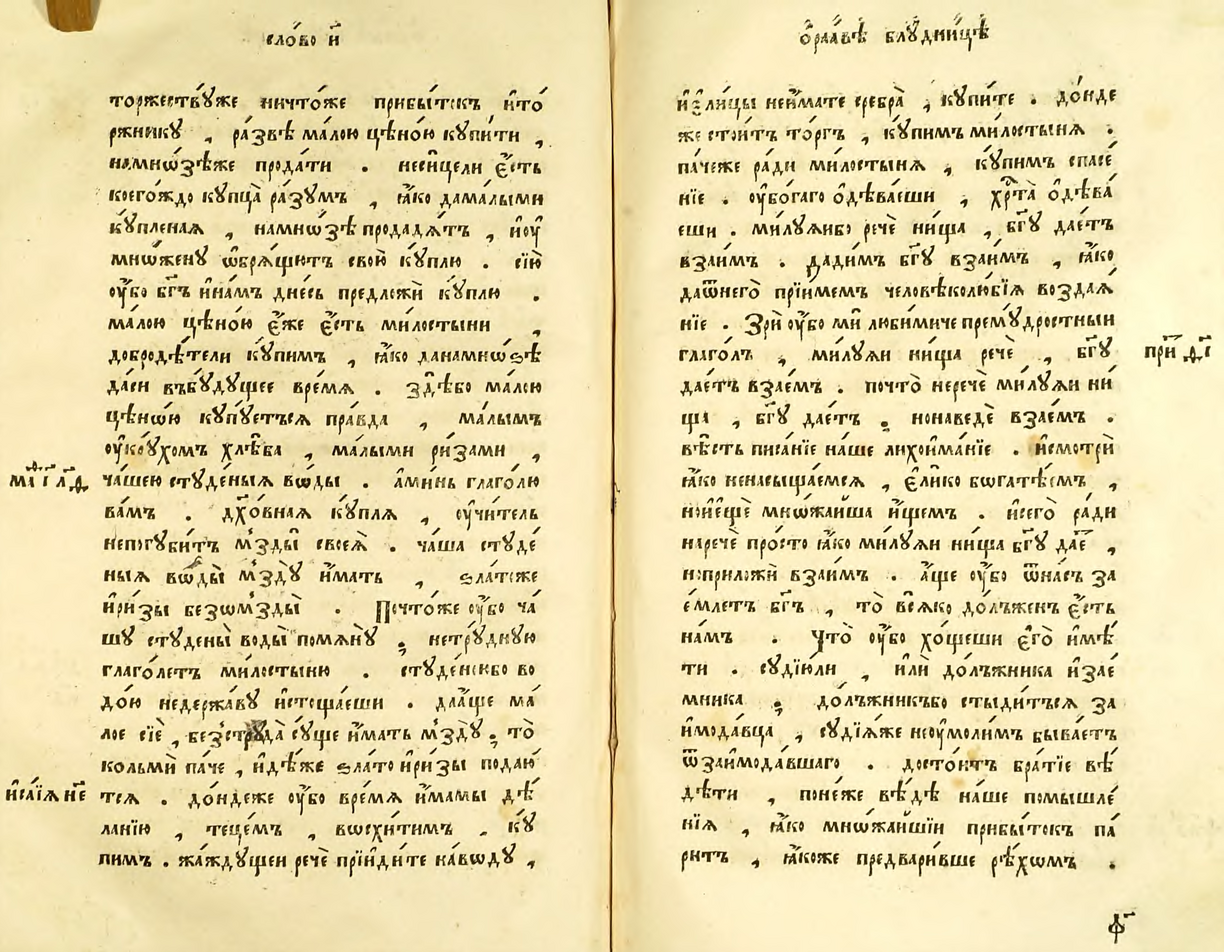 сло́во и҃
торжествꙋ́юже ничто́же прибы́токъ и҆то
ржникꙋ , ра́звѣ ма́лою цѣно́ю кꙋпи́ти ,
намнѡ́зѣже прода́ти . неси́цели є҆́сть
коего́ждо кꙋпца̀ ра́зꙋмъ , ꙗ҆́ко дама́лыми
кꙋ́пленая , намнѡ́зѣ продадѧ́тъ , и҆оу҆
мнѡ́женꙋ ѡ҆брѧ́щютъ свой кꙋ́плю . сїю̀
оу҆́бо бг҃ъ и҆на́мъ дне́сь предложѝ кꙋ́плю .
ма́лою цѣно́ю є҆́же є҆́сть ми́лостыни ,
добродѣ́тели кꙋ́пимъ , ꙗ҆́ко данамнѡ́ѕѣ
да́си въбꙋ́дꙋщее вре́мѧ . здѣ́бо ма́лою
цѣнѡ́ю кꙋпꙋ́етъсѧ пра́вда , ма́лымъ
оу҆кꙋ́хомъ хлѣ́ба , ма́лыми ри́зами ,
ча́шею стꙋ́деныѧ вѡды̀ . а҆ми́нь глаго́лю
ва́мъ . дх҃о́внаѧ кꙋ́плѧ , оу҆чи́тель
непогꙋби́тъ мъзды̀ своеѧ̀ . ча́ша стꙋде
ныѧ вѡды̀ мъздꙋ̀ и҆́мать , ѕла́тоже
и҆ри́зы безѡмъзды̀ . Почто́же оу҆́бо ча́
шꙋ стꙋ́дены̀ воды̀ помѧнꙋ̀ ; нетрꙋ́днꙋю
глаго́летъ ми́лостыню . стꙋде́ноюбо во
до́ю недержа́вꙋ и҆стоща́еши . даа́ще ма́
лое сїѐ , безтрꙋда̀ сꙋ́ще и҆́мать мъздꙋ̀ ; то̀
кольмѝ па́че , и҆дѣ́же ѕла́то и҆ри́зы подаю́
тсѧ . до́ндеже оу҆́бо вре́мѧ и҆́мамы дѣ́
ланїю , тече́мъ , вѡсхи́тимъ , кꙋ́
пимъ . жа́ждꙋщеи речѐ прїиди́те на́вѡдꙋ ,
ма҃ ї҃ л҃д
и҆са́їѧ н҃е
ѡ҆раа́вѣ блꙋдни́цѣ
и҆е҆ли́цы неи҆́мате сребра̀ , кꙋпи́те . до́нде
же стои́тъ то́ргъ , кꙋ́пимъ ми́лостынѧ .
па́чеже ра́ди ми́лостынѧ , кꙋ́пимъ спасе́
нїе . оу҆бо́гаго ѡ҆дѣва́еши , хрⷭ҇та̀ ѡ҆дѣва́
еши . ми́лꙋѧибо речѐ ни́ща , бг҃ꙋ дае́тъ
вза́имъ . дади́мъ бг҃ꙋ вза́имъ , ꙗ҆́ко
даѿнего̀ прїи́мемъ человѣколю́бїѧ воздаѧ́
нїе . Зрѝ оу҆́бо мѝ люби́миче премꙋ́дростныи
глаго́лъ , ми́лꙋѧи ни́ща речѐ , бг҃ꙋ
дае́тъ взае́мъ . почто̀ неречѐ ми́лꙋѧи ни́
ща , бг҃ꙋ дае́тъ ; нонаведѐ взае́мъ .
вѣ́сть писа́нїе на́ше лихоима́нїе . и҆смотрѝ
ꙗ҆́ко ненасыща́емсѧ , є҆ли́ко бѡгатѣ́емъ ,
нои҆е҆щѐ мнѡ́жаиша и҆́щемъ . и҆сего̀ ра́ди
наречѐ про́сто ꙗ҆́ко ми́лꙋѧи ни́ща бг҃ꙋ дае́ ,
ноприложѝ вза́имъ . а҆́ще оу҆́бо ѿна́съ за
е́млетъ бг҃ъ , то̀ всѧ́ко до́лъженъ є҆́сть
на́мъ . Что̀ оу҆́бо хо́щеши є҆го̀ и҆мѣ́
ти . сꙋдїю́ли , и҆лѝ до́лъжника и҆зае́
мника ; до́лъжникъбо стыди́тъсѧ за
и҆мода́вца , сꙋдїѧ́же неоу҆моли́мъ быва́етъ
ѿзаимода́вшаго . досто́итъ бра́тїе вѣ́
дѣти , поне́же вѣ́дѣ на́ше помышле́
нїѧ , ꙗ҆́ко мнѡ́жаишїи прибы́токъ па́
ритъ , ꙗ҆́коже предвари́вше рѣ́хѡмъ .
при҃ д҃ї
ф҃